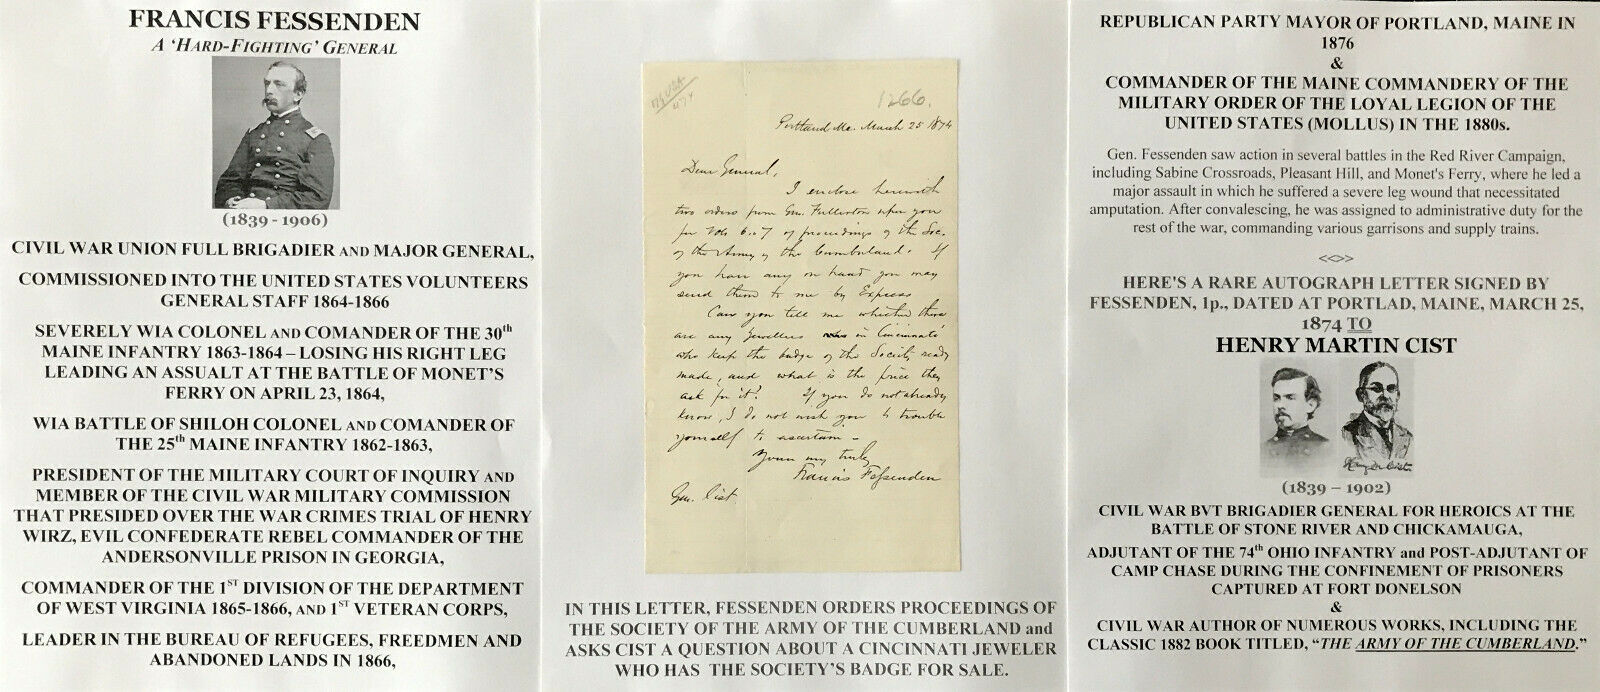 FRANCIS FESSENDEN
A 'HARD-FIGHTING' GENERAL
(1839 - 1906)
CIVIL WAR UNION FULL BRIGADIER AND MAJOR GENERAL,
COMMISSIONED INTO THE UNITED STATES VOLUNTEERS
GENERAL STAFF 1864-1866
SEVERELY WIA COLONEL AND COMANDER OF THE 30th
MAINE INFANTRY 1863-1864 – LOSING HIS RIGHT LEG
LEADING AN ASSUALT AT THE BATTLE OF MONET'S
FERRY ON APRIL 23, 1864,
WIA BATTLE OF SHILOH COLONEL AND COMANDER OF
THE 25th MAINE INFANTRY 1862-1863,
PRESIDENT OF THE MILITARY COURT OF INQUIRY AND
MEMBER OF THE CIVIL WAR MILITARY COMMISSION
THAT PRESIDED OVER THE WAR CRIMES TRIAL OF HENRY
WIRZ, EVIL CONFEDERATE REBEL COMMANDER OF THE
ANDERSONVILLE PRISON IN GEORGIA,
COMMANDER OF THE 1ST DIVISION OF THE DEPARTMENT
OF WEST VIRGINIA 1865-1866, AND 1ST VETERAN CORPS,
LEADER IN THE BUREAU OF REFUGEES, FREEDMEN AND
ABANDONED LANDS IN 1866,
1266.
Portland Me. March 25 1874
Dear General,
I enclose herewith
two orders from Gen. Fullerton upon you
for Vols 6 & 7 of proceedings of the Soc.
of the Army of the Cumberland. If
you have any on hand you may
send them to me by Express
Can you tell me whether there
are any Jewellers in Cincinnati
who keep the badge of the Society ready
made, and what is the price they
ask for it? If you do not already
know, I do not wish you to trouble
yourself to ascertain -
Yours very truly
Francis Fessenden
Gen. Cist
IN THIS LETTER, FESSENDEN ORDERS PROCEEDINGS OF
THE SOCIETY OF THE ARMY OF THE CUMBERLAND and
ASKS CIST A QUESTION ABOUT A CINCINNATI JEWELER
WHO HAS THE SOCIETY'S BADGE FOR SALE.
REPUBLICAN PARTY MAYOR OF PORTLAND, MAINE IN
1876
&
COMMANDER OF THE MAINE COMMANDERY OF THE
MILITARY ORDER OF THE LOYAL LEGION OF THE
UNITED STATES (MOLLUS) IN THE 1880s.
Gen. Fessenden saw action in several battles in the Red River Campaign,
including Sabine Crossroads, Pleasant Hill, and Monet's Ferry, where he led a
major assault in which he suffered a severe leg wound that necessitated
amputation. After convalescing, he was assigned to administrative duty for the
rest of the war, commanding various garrisons and supply trains.
<<>>
HERE'S A RARE AUTOGRAPH LETTER SIGNED BY
FESSENDEN, 1p., DATED AT PORTLAD, MAINE, MARCH 25,
1874 TO
HENRY MARTIN CIST
Henry M. Cist
(1839 – 1902)
CIVIL WAR BVT BRIGADIER GENERAL FOR HEROICS AT THE
BATTLE OF STONE RIVER AND CHICKAMAUGA,
ADJUTANT OF THE 74th OHIO INFANTRY and POST-ADJUTANT OF
CAMP CHASE DURING THE CONFINEMENT OF PRISONERS
CAPTURED AT FORT DONELSON
&
CIVIL WAR AUTHOR OF NUMEROUS WORKS, INCLUDING THE
CLASSIC 1882 BOOK TITLED, "THE ARMY OF THE CUMBERLAND."